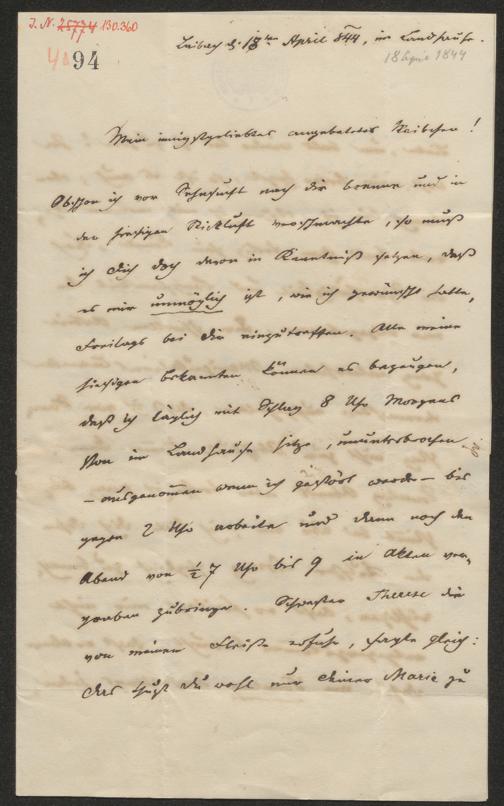 I. N. 25774 130.360
94
Laibach d: 18ten April 844, im Landhause.
18 April 1844
Mein innigstgeliebtes angebetetes Weibchen!
Obschon ich vor Sehnsucht nach dir brenne und in
der hiesigen Stickluft verschmachte, so muß
ich dich doch davon in Kenntniß setzen, daß
es mir unmöglich ist, wie ich gewünscht hatte,
Freitags bei dir einzutreffen. Alle meine
hiesigen Bekannten können es bezeugen,
daß ich täglich mit Schlag 8 Uhr Morgens
schon im Landhause sitze, ununterbrochen
– ausgenommen wenn ich gestört werde – bis
gegen 2 Uhr arbeite und dann noch den
Abend von ½ 7 Uhr bis 9 in Akten ver-
graben zubringe. Schwester Therese die
von meinem Fleiße erfuhr, sagte gleich:
das thust du wohl nur deiner Marie zu